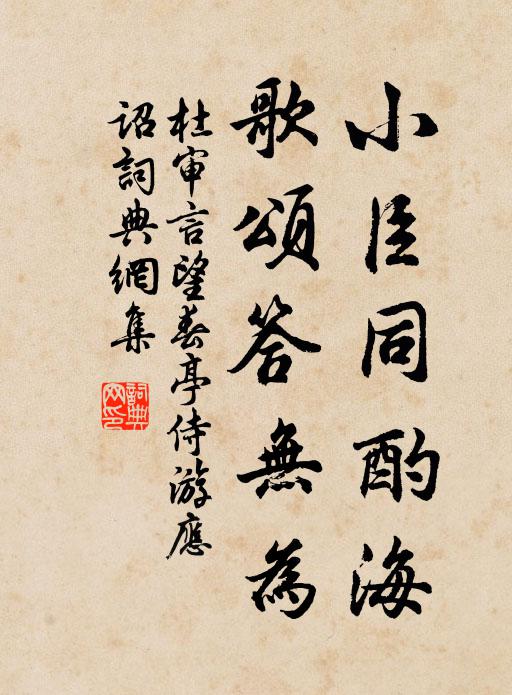 小臣同酌海
歌頌答無為
杜审言望春亭侍游應
詔詞典網集
詞典
网印